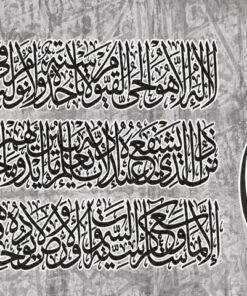 لا إله إلا هو الحي القيوم لا تأخذه سنة ولا نوم
ذا الذي يشفع عنده إلا بإذنه يعلم ما بين أيديهم
إلا بما شاء وسع كرسيه السموات والأرض ولا يؤده